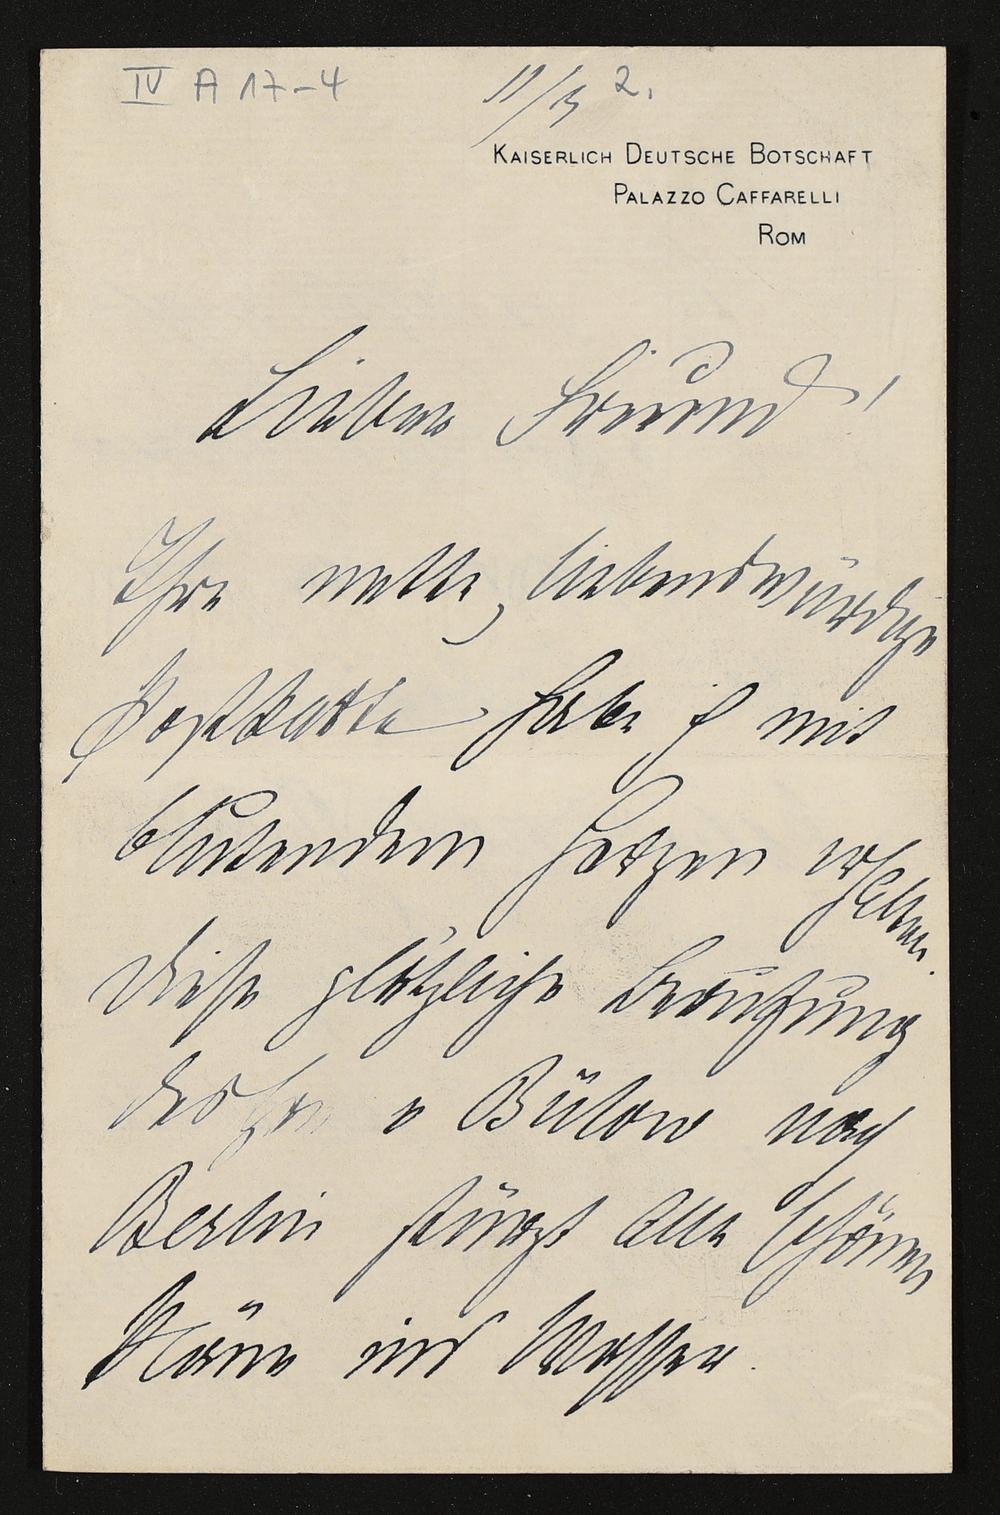 IV A 17-4
KAISERLICH DEUTSCHE BOTSCHAFT
PALAZZO CAFFARELLI
ROM
Lieber Freund!
Ihre nette, liebenswürdige
Postkarte habe ich mit
blutendem Herzen erhalten.
Diese plötzliche Berufung
des Hrn v Bülow nach
Berlin stürzt alle schönen
Pläne ins Wasser.